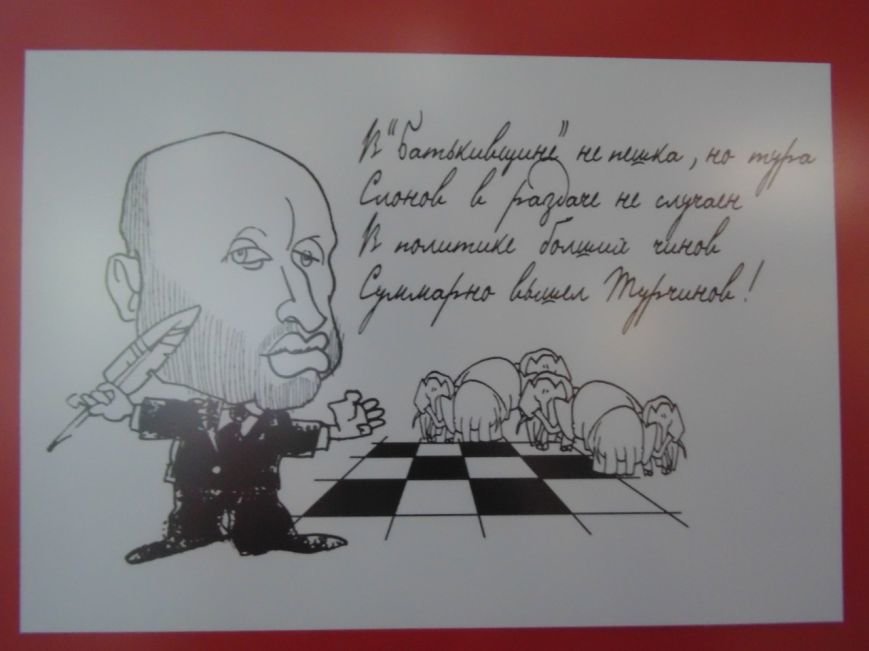 В "Батькивщине" не пешка, но тура
Слонов в раздаче не случаен
В политике болший чинов
Суммарно вышел Турчинов!